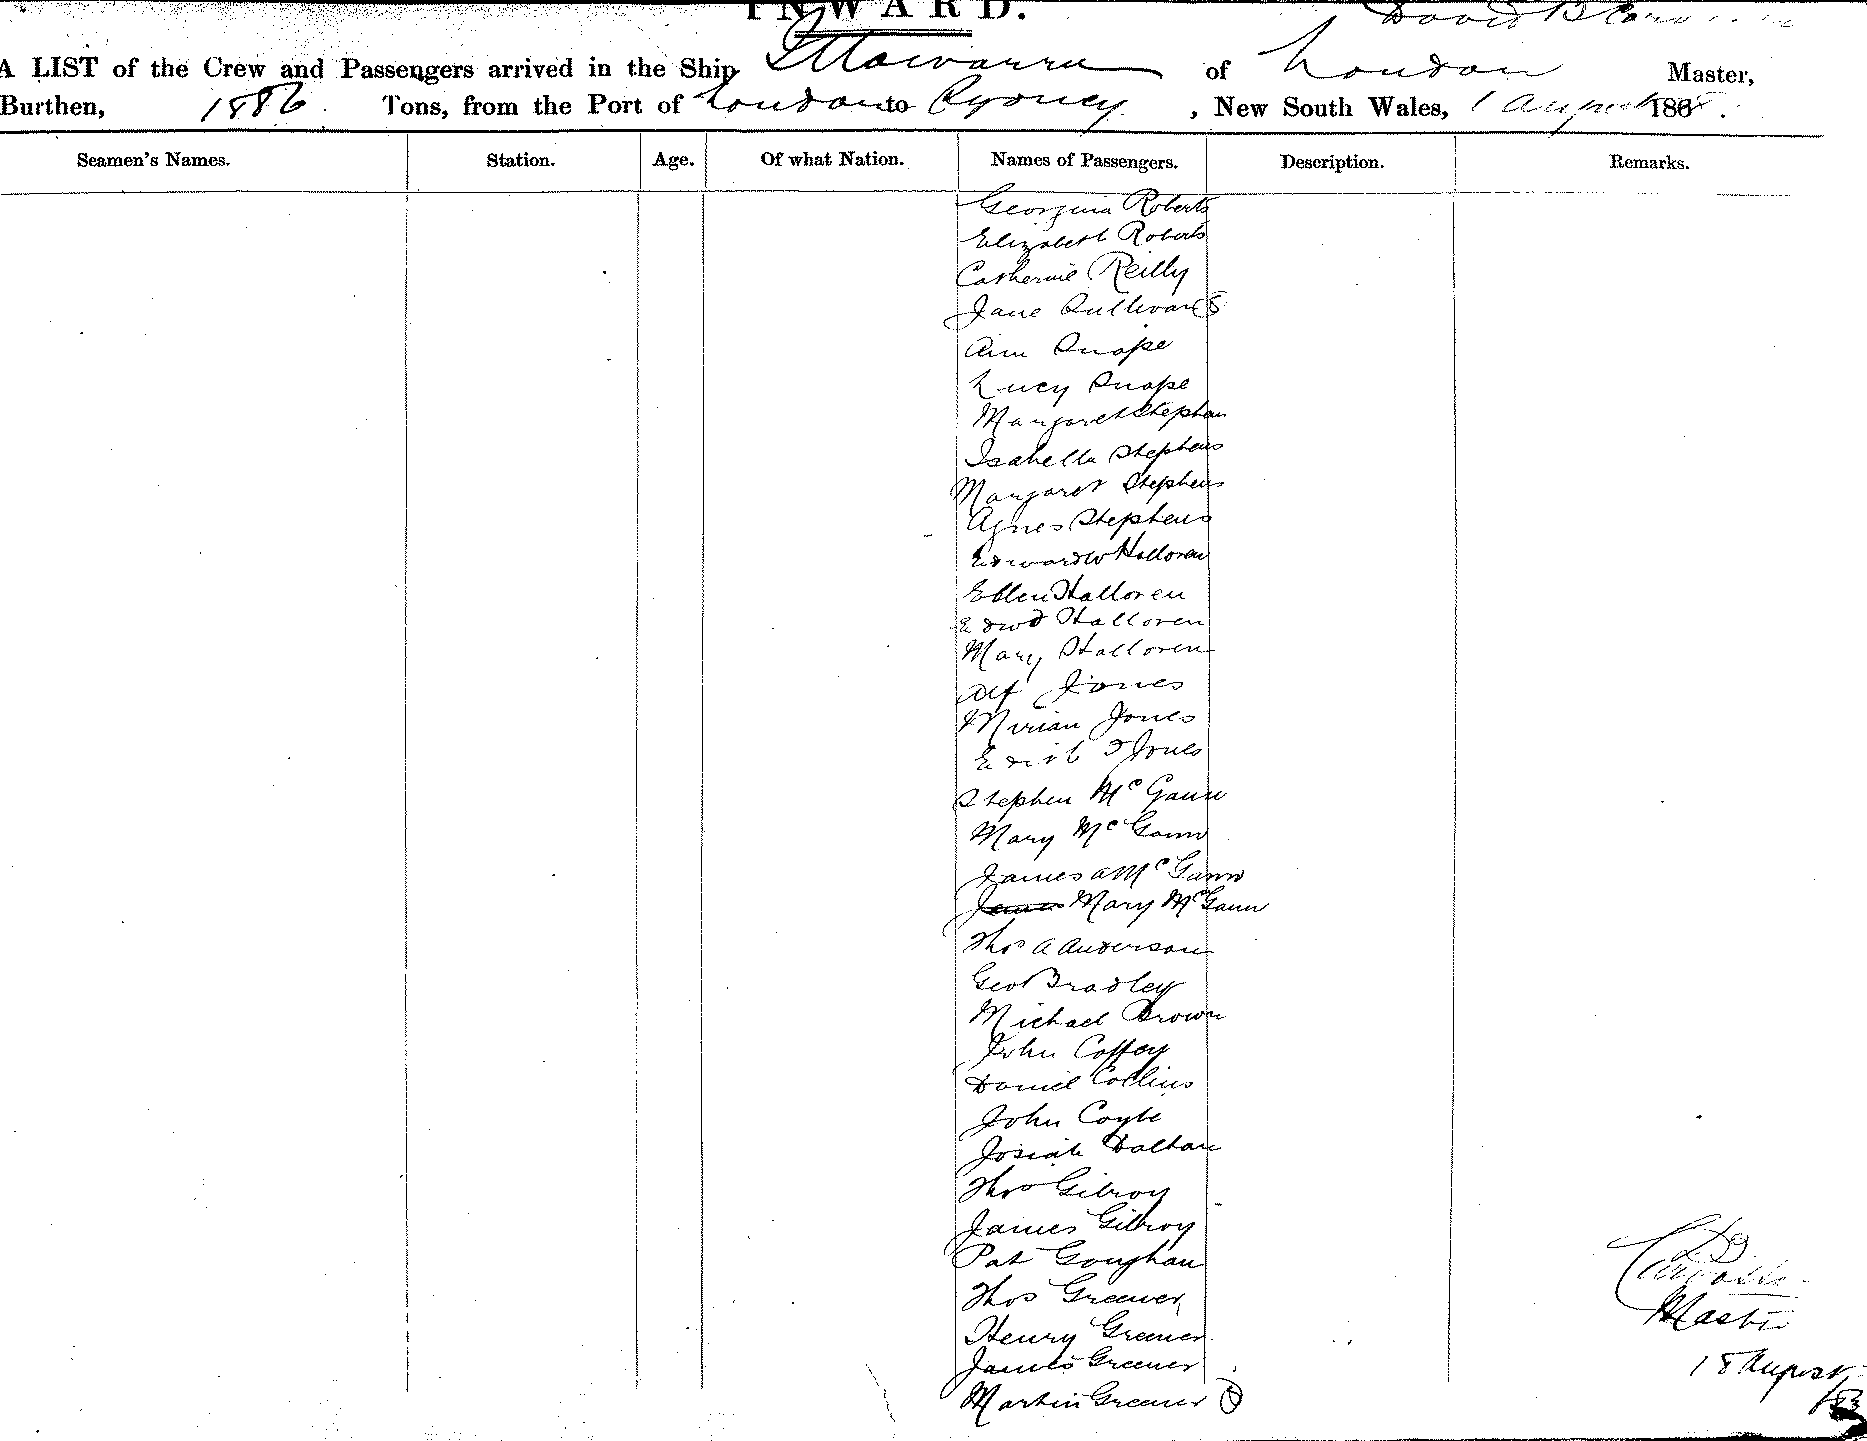 INWARD.
A LIST of the Crew and Passengers arrived in the Ship Illawarra of London Master,
Burthen, 1886 Tons, from the Port of London to Sydney, New South Wales, 1 August 188
Seamen's Names. Station. Age. Of what Nation. Names of Passengers. Description. Remarks.
Georgina Roberts
Elizabeth Roberts
Catherine Reilly
Jane Sullivan
Ann Snape
Lucy Snape
Margaret Stephen
Isabella Stephens
Margaret Stephens
Agnes Stephens
Edward W Halloren
Ellen Halloren
Edwd Halloren
Mary Halloren
Alf Jones
Mirian Jones
Edith J Jones
Stephen McGann
Mary McGann
James A McGann
James Mary McGann
Thos A Anderson
Geo Bradley
Michael Brown
John Coffey
Daniel Collins
John Coyle
Josiah Daltan
Thos Gilroy
James Gilroy
Pat Goughan
Thos Greener
Henry Greener
James Greener
Martin Greener
Master
18 August
/83